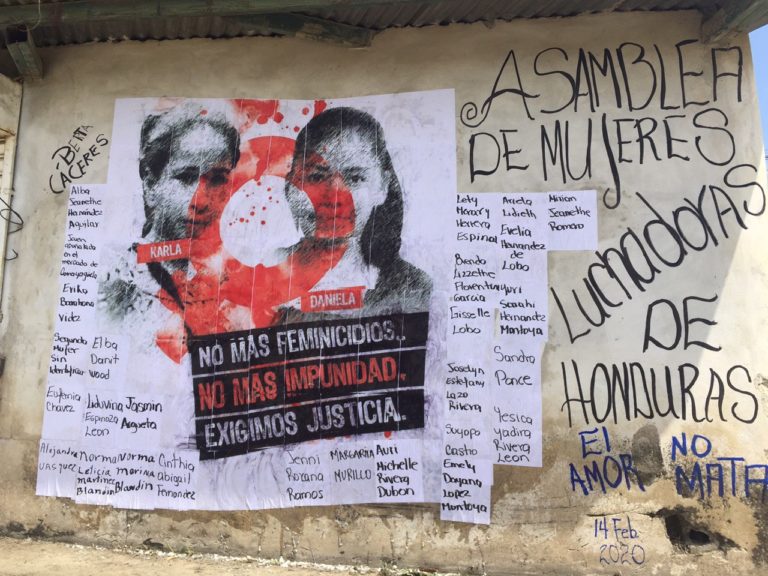 BERTA
CACERES
Alba
Jeanethe
Hernández
Aguilar
Joven
asesinada
en el
mercado de
Comayaguela
Erika
Barahona
Videz
Segunda
Mujer
Sin
Identificar
Elba
Danit
Wood
Eufemia
Chavez
Liduvina
Espinoza
Leon
Jasmin
Argueta
Alejandra
VASQUEZ
Norma
Leticia
martinez
Blandin
Norma
marina
Blandin
Cinthia
Abigail
Fernandez
KARLA
DANIELA
NO MÁS FEMINICIDIOS..
NO MÁS IMPUNIDAD..
EXIGIMOS JUSTICIA.
Jenni
Roxana
Ramos
MARGARITA
MURILLO
Auri
Michelle
Rivera
Dubon
Lety
Herrera
Espinal
Brenda
Lizzethe
Garcia
Gisselle
Lobo
Joselyn
Estefany
Lazo
Rivera
Suyapa
Castro
Emely
Dayana
Lopez
Montoya
Arieta
Lidieth
Evelia
Hernandez
de
Lobo
Yuri
Sarahi
Hernandez
Montoya
Sandra
Ponce
Yesica
Yadira
Rivera
Leon
Mirian
Jeanethe
Romero
ASAMBLEA
DE MUJERES
LUCHADORAS
DE
HONDURAS
El
AMOR
NO
MATA
14 Feb.
2020